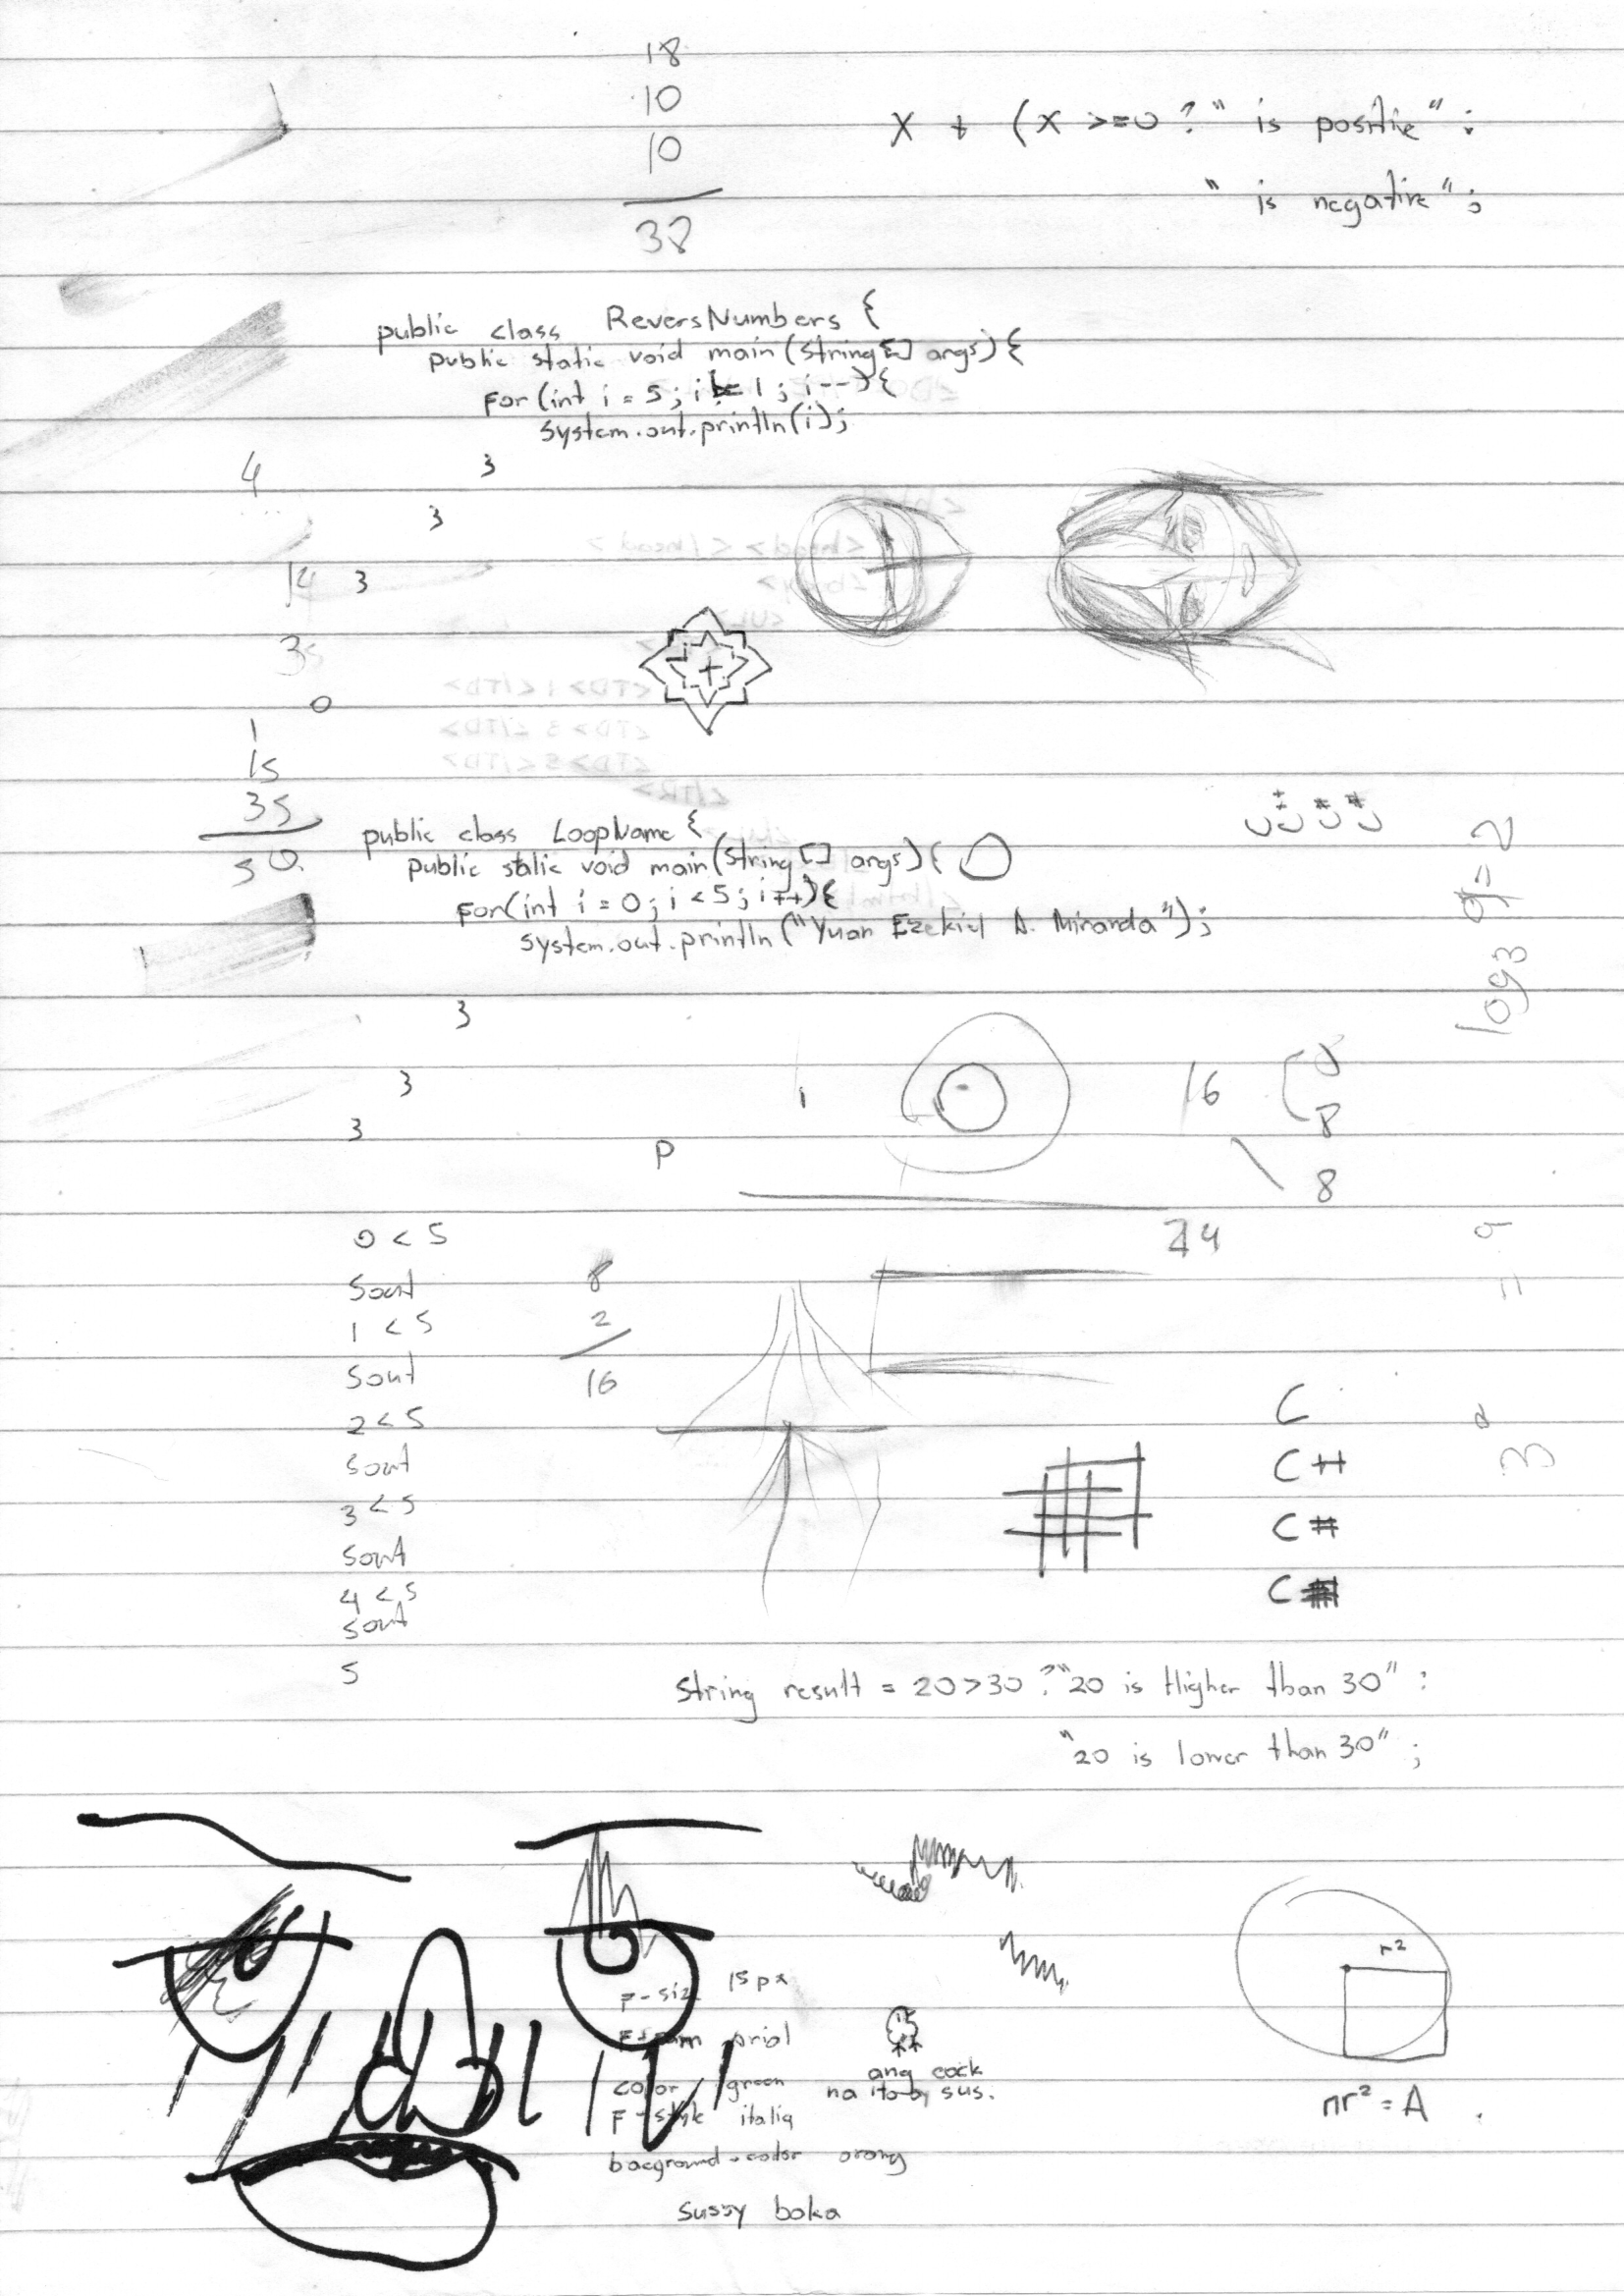 18
10
10
38
X + (x >=0 ? " is positie" :
" is negative" ;
public class ReversNumbers {
public static void main(String[] args) {
For (int i = 5; i != 1; i--) {
system.out.println(i);
}
}
}
4
14
35
0
1
15
35
50
public class LoopName {
public static void main(String[] args) {
For(int i = 0; i < 5; i++){
system.out.println("Yuan Ezekiel A. Miranda");
}
}
}
log3 9 = 2
16
8
8
24
P
0 < 5
Sout
1 < 5
Sout
2 < 5
Sout
3 < 5
Sout
4 < 5
Sout
5
8
2
16
3 2 = 9
C
C++
C#
C
String result = 20>30 ? "20 is Higher than 30" :
"20 is lower than 30" ;
F-size 15px
color green
F-style italiq
bacground-color orang
sussy boka
ang cock
na ito ay sus.
r²
πr² = A